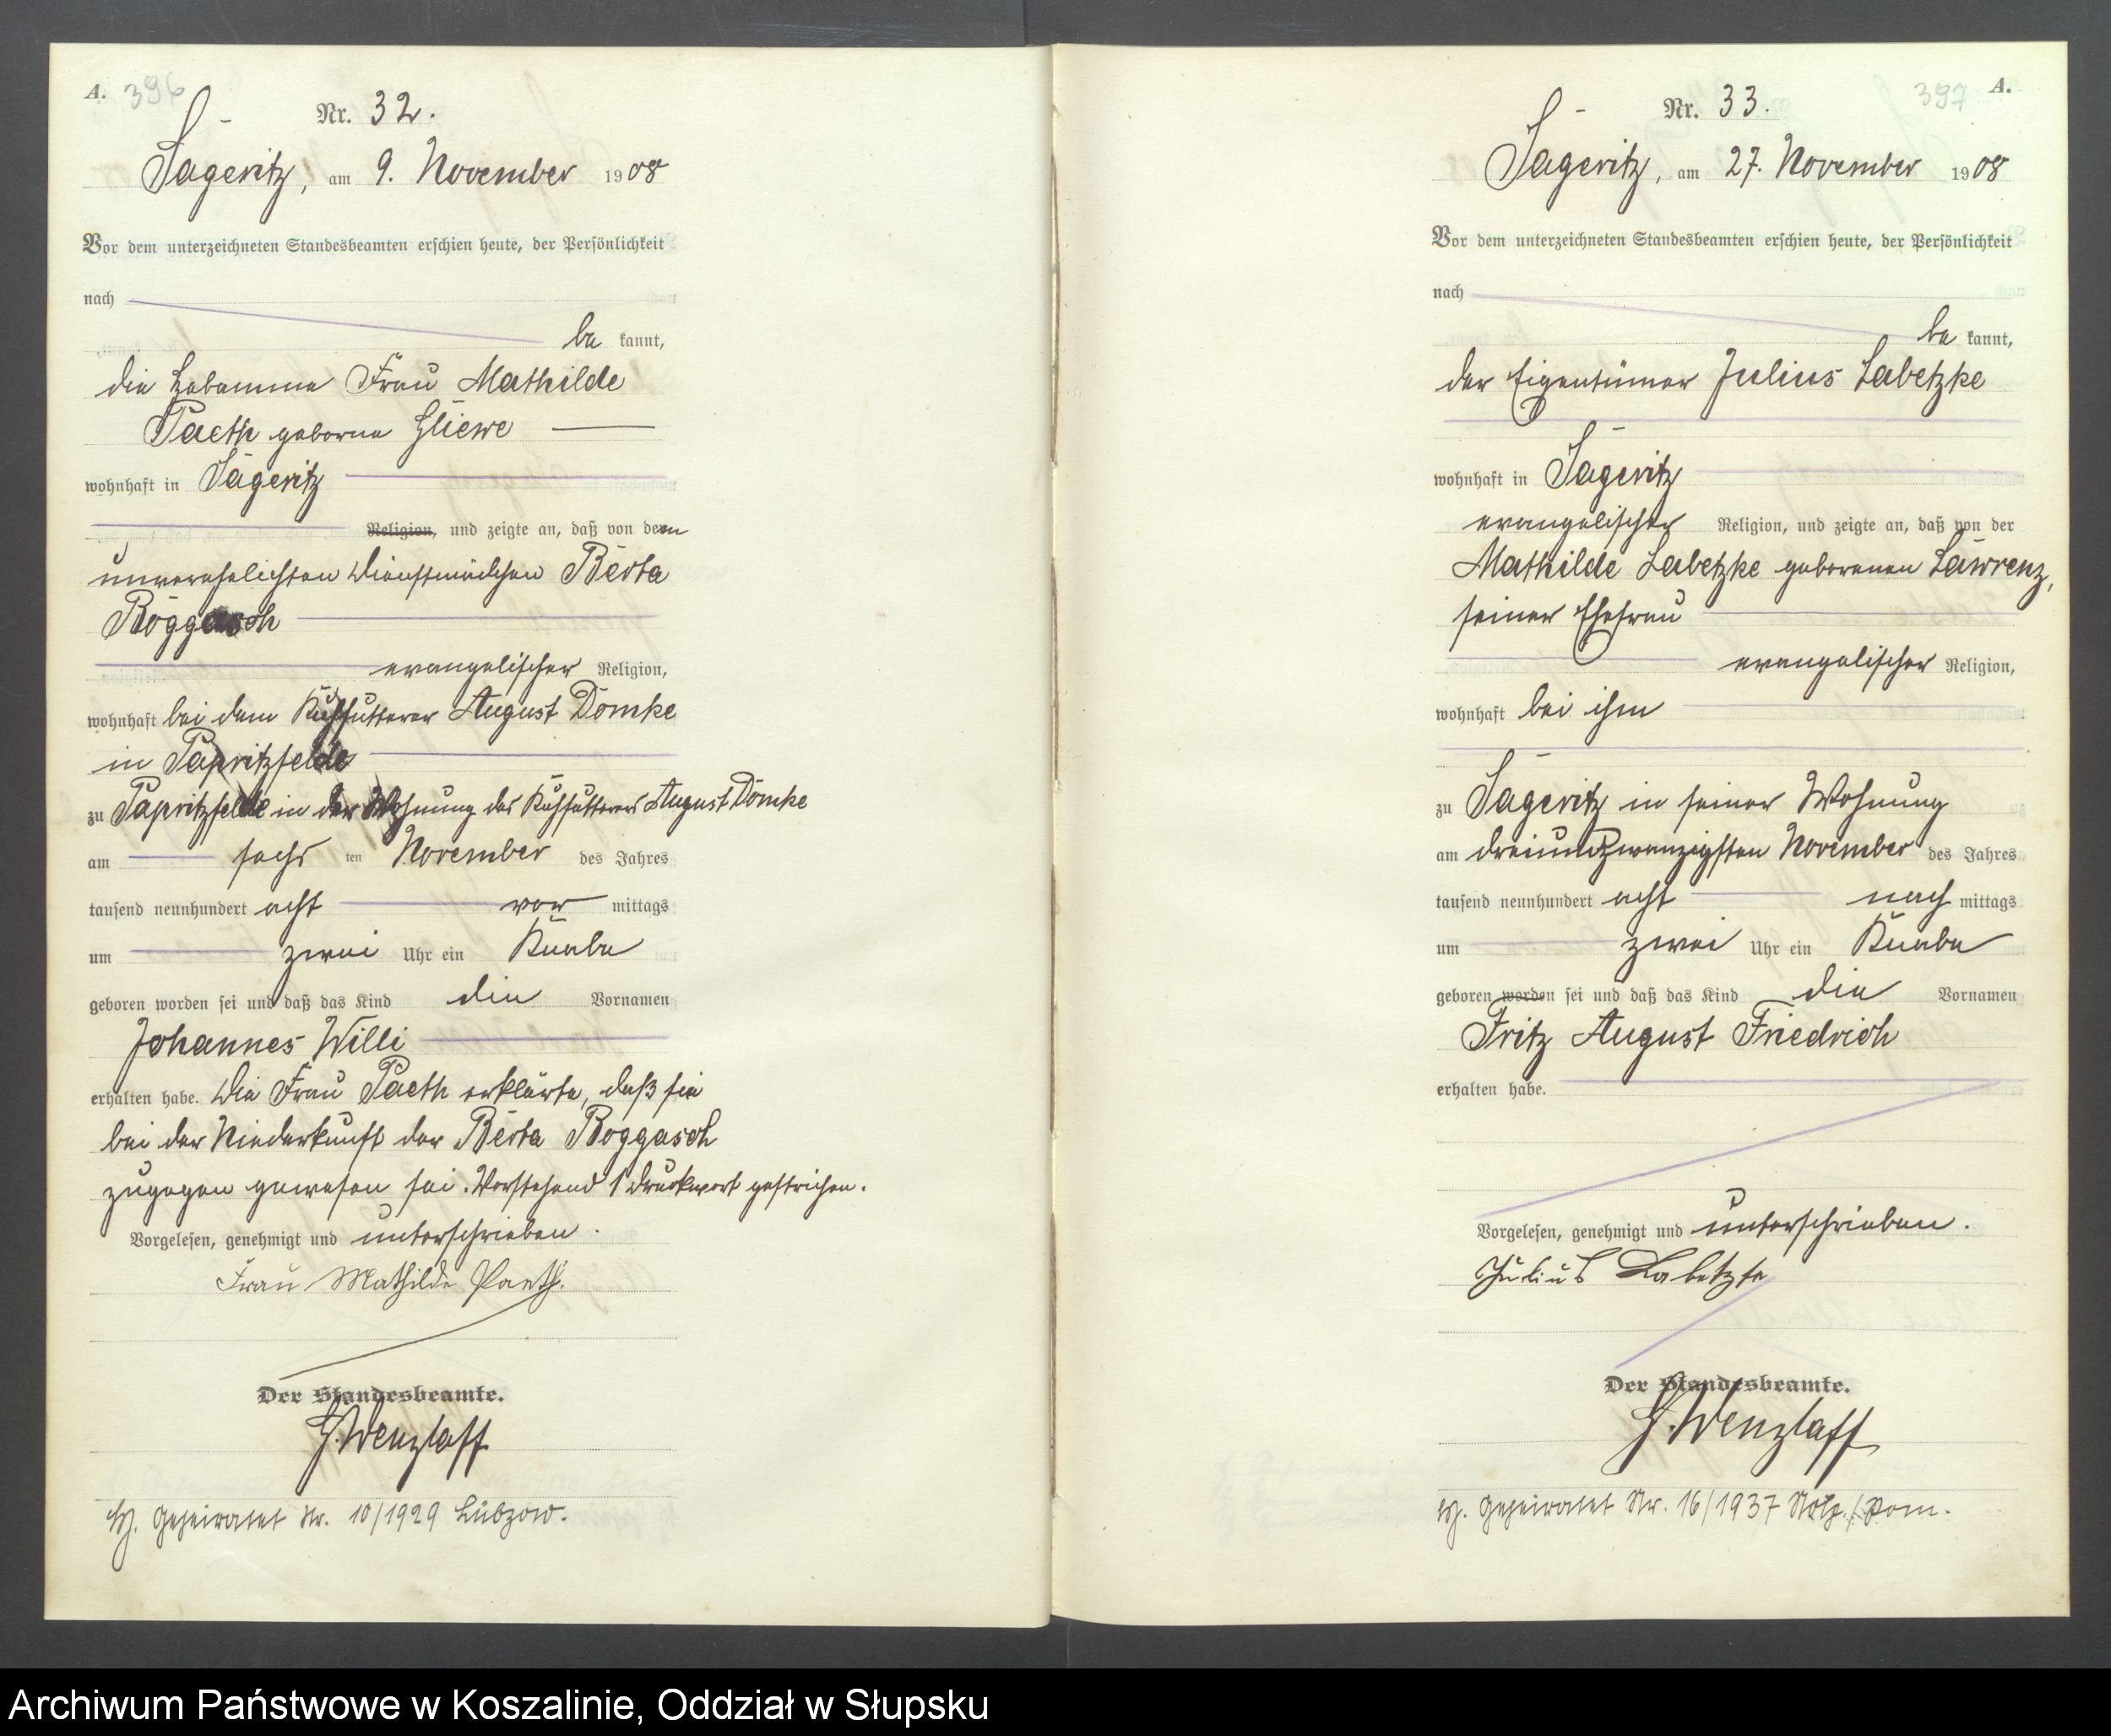 A. 396
Nr. 32.
Sageritz, am 9. November 1908
Vor dem unterzeichneten Standesbeamten erschien heute, der Persönlichkeit
nach
be kannt,
die Hebamme Frau Mathilde
Paeth geborne Gliewe
wohnhaft in Sageritz
Religion, und zeigte an, daß von dem
unverehelichten Dienstmädchen Berta
Roggasch
evangelischer Religion,
wohnhaft bei dem Kuhfutterer August Domke
in Papritzfelde
zu Papritzfelde in der Wohnung des Kuhfutterers August Domke
am sechs ten November des Jahres
tausend neunhundert acht vor mittags
um zwei Uhr ein Knabe
geboren worden sei und daß das Kind die Vornamen
Johannes Willi
erhalten habe. Die Frau Paeth erklärte, daß sie
bei der Niederkunft der Berta Roggasch
zugegen gewesen sei. Vorstehend 1 Druckwort gestrichen.
Vorgelesen, genehmigt und unterschrieben.
Frau Mathilde Paeth.
Der Standesbeamte.
H. Wenzlaff
geheiratet Nr. 10/1929 Lübzow.
397 A.
Nr. 33.
Sageritz, am 27. November 1908
Vor dem unterzeichneten Standesbeamten erschien heute, der Persönlichkeit
nach
be kannt,
der Eigentümer Julius Labetzke
wohnhaft in Sageritz
evangelischer Religion, und zeigte an, daß von der
Mathilde Labetzke geborenen Lawrenz,
seiner Ehefrau
evangelischer Religion,
wohnhaft bei ihm
zu Sageritz in seiner Wohnung
am dreiundzwanzigsten November des Jahres
tausend neunhundert acht nach mittags
um zwei Uhr ein Knabe
geboren worden sei und daß das Kind die Vornamen
Fritz August Friedrich
erhalten habe.
Vorgelesen, genehmigt und unterschrieben.
Julius Labetzke
Der Standesbeamte.
H. Wenzlaff
geheiratet Nr. 16/1937 /Pom.
Archiwum Państwowe w Koszalinie, Oddział w Słupsku